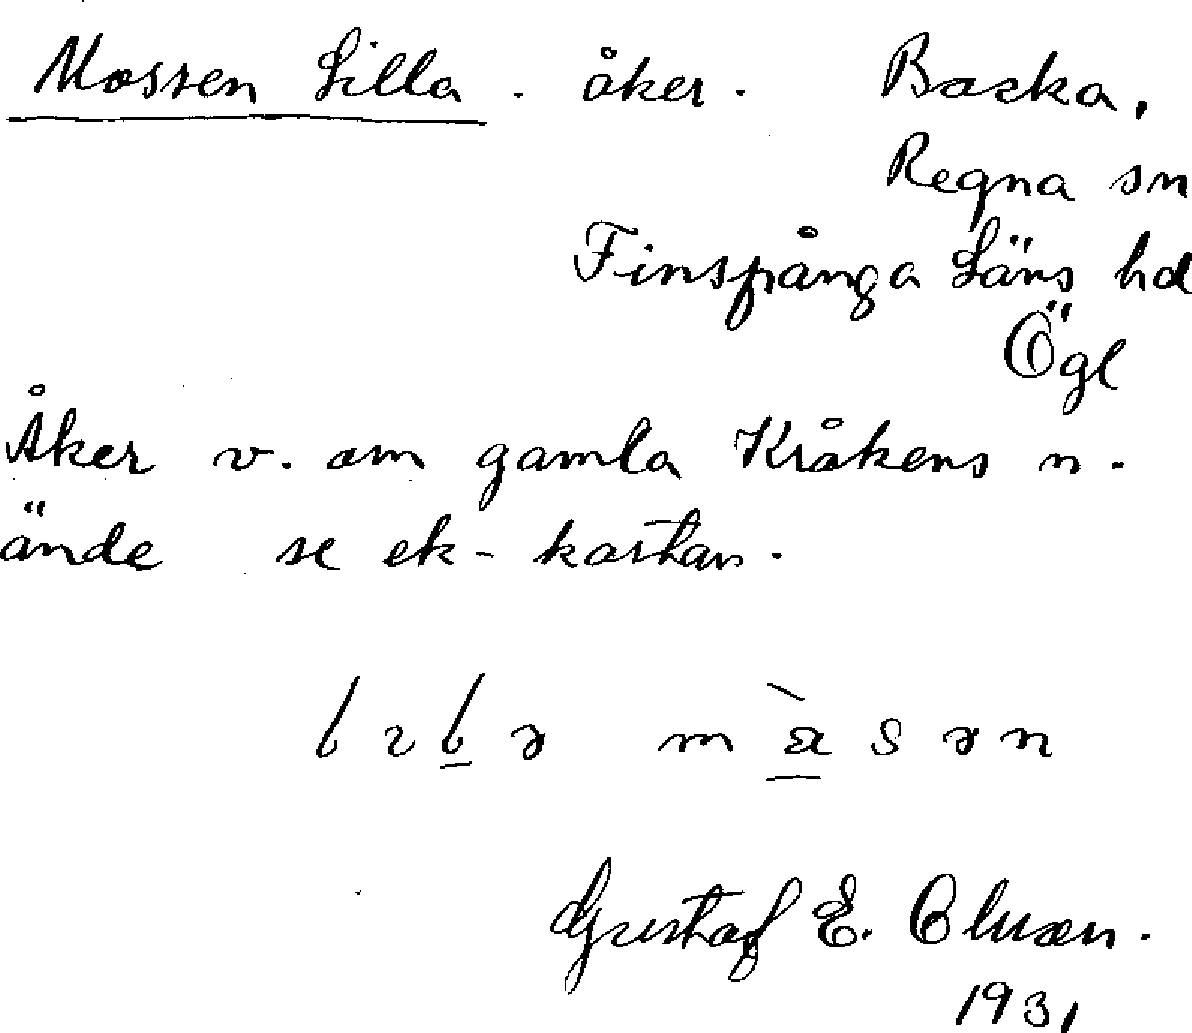 Mossen Lilla . åker . Backa,
Regna sn
Finspånga Läns hd
Ögl
Åker v. om gamla Kråkens n.
ände se ek-kartan.
Gustaf E. Cluxen.
1931